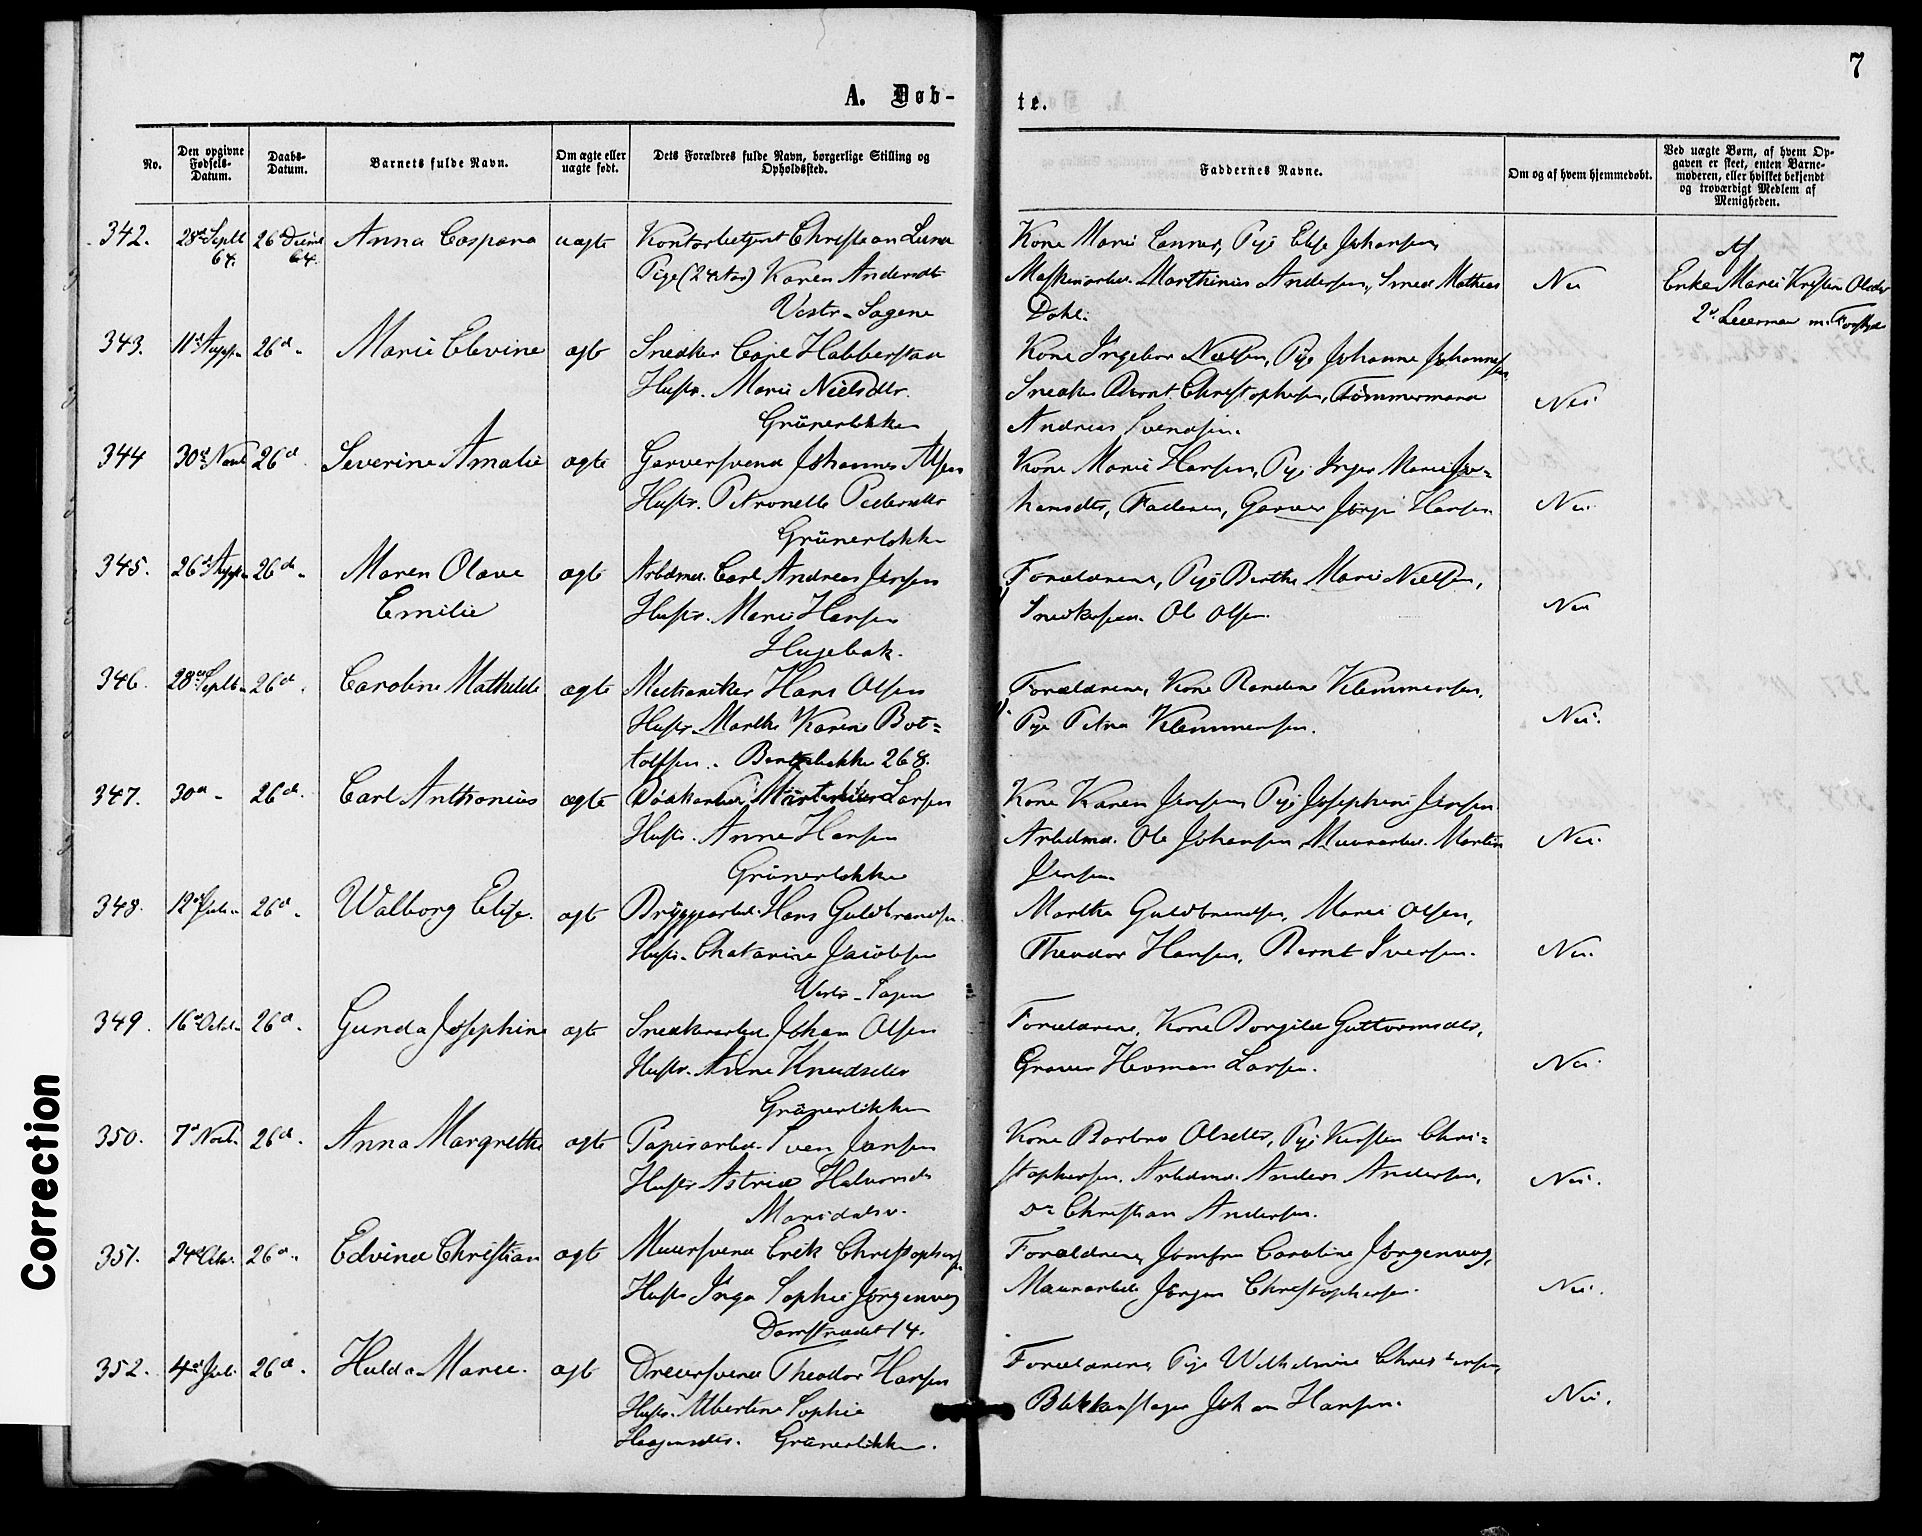 7
A. Døb-
te.
No.
Den opgivne Fødsels-Datum.
Daabs-Datum.
Barnets fulde Navn.
Om ægte eller uægte født.
Dets Forældres fulde Navn, borgerlige Stilling og Opholdssted.
Faddernes Navne.
Om og af hvem hjemmedøbt.
Ved uægte Børn, af hvem Opgaven er skeet, enten Barnemoderen, eller hvilket bekjendt og troværdigt Medlem af Menigheden.
342. 28de Septb 64. 26de 64. Anna Caspara uægte Christian
Pige Karen Andersdtr
Vestr. Sagene
Kone Marie Pige Elise Johansen,
Marthinius Andersen, Smed Mathias
Dahl.
Nei
Af
Enke Marie Olsdtr
343. 11te 26de Marie Elevine ægte Snedker Carl
Hustr. Marie Nielsdtr.
Grünerløkken
Kone Nielsen, Pige Johanne Johannesen,
Snedker Bernt Christophersen, Tømmermand
Andreas Svendsen.
Nei
344 30te Novb 26de Severine Amalie ægte Garversvend Johannes Olsen
Hustr. Petronelle Pedersdtr
Grünerløkken
Kone Marie Hansen, Pige Inger Marie Jo=
hansdtr, Faderen, Garver Hansen
Nei
345. 26de 26de Maren Olave
Emilie ægte Arbdmd. Carl Andreas Jensen
Hustr. Marie Hansen
Forældrene, Pige Berthe Marie Nielsen,
Ole Olsen.
Nei
346. 28de Septb. 26de Caroline Mathilde ægte Mechaniker Hans Olsen
Hustr. Marthe Karine Bot=
tolfsen. 268.
Forældrene, Kone Randine Klemmensen,
Pige Petra Klemmensen.
Nei.
347. 30te 26de Carl Anthonius ægte Larsen
Hustr. Anne Hansen
Grünerløkken
Kone Karen Jensen, Pige Josephine Jensen
Arbdmd. Ole Johansen, Murarbd. Martin
Jensen
Nei.
348. 12te 26de Walborg Elise. ægte Bryggearbd. Hans Guldbrandsen
Hustr. Chatarine Jacobsen
Vestr. Sagen
Marthe Guldbrandsen, Marie Olsen,
Theodor Hansen, Bernt Iversen.
Nei.
349. 16de Octb. 26de Gunda Josephine ægte Snedkerarbd. Johan Olsen
Hustr. Anne Knudsdtr
Grünerløkken
Forældrene, Kone Borgild Guttormsdtr,
Herman Larsen.
Nei
350. 7de Novb. 26de Anna Margrethe ægte Papirarbd. Sven Jansen
Hustr Astrid Halvorsd
Maridalsv.
Kone Barbro Olsdtr, Pige Kirsten Chri=
stophersen. Arbdmd. Anders Andersen,
Do Christian Andersen.
Nei.
351. 24de Octb. 26de Edvind Christian ægte Muursvend Erik Christophersen
Hustr Inga Sophie Jørgensen
Damstrædet 14.
Forældrene, Jomfru Caroline
Muurarbdr Jørgen Christophersen.
Nei.
352. 4de Juli 26de Hulda Marie. ægte Dreiersvend Theodor Hansen
Hustr. Albertine Sophie
Haagensdtr. Grünerløkken.
Forældrene, Pige Wilhelmine Christensen,
Blikkenslager Johan Hansen.
Nei.
Correction